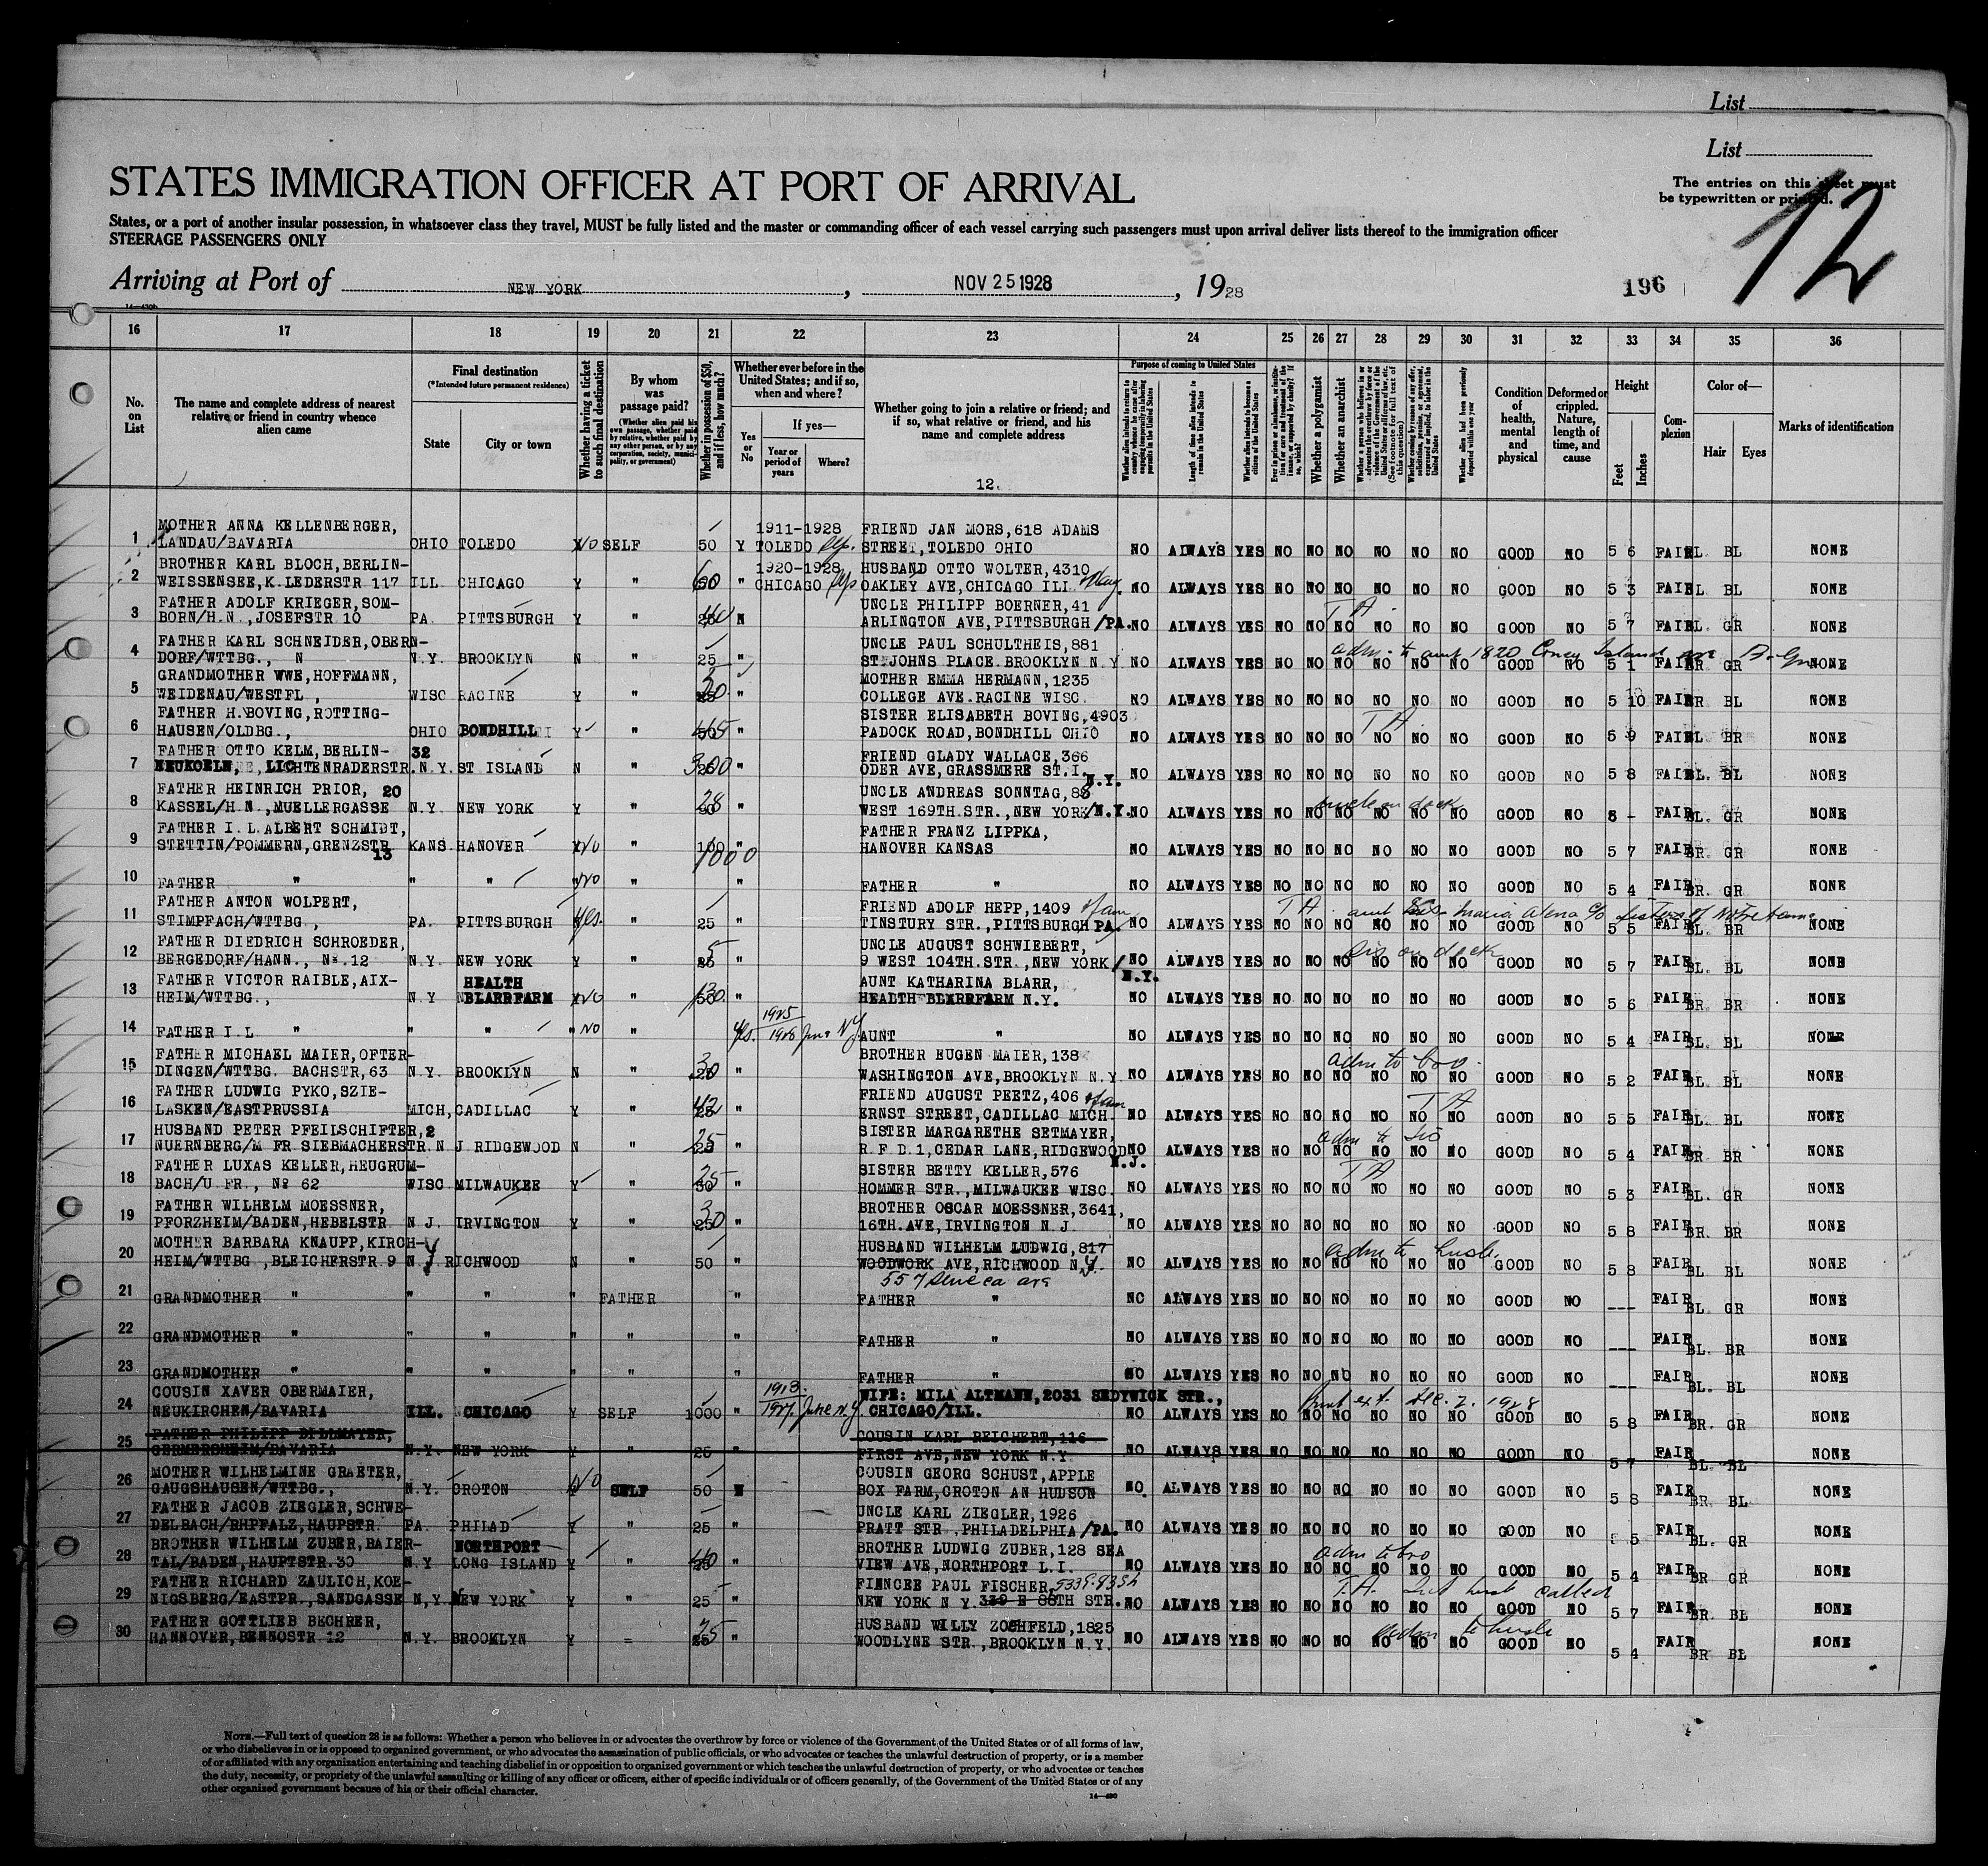 List
List
The entries on this sheet must
be typewritten or printed.
12
STATES IMMIGRATION OFFICER AT PORT OF ARRIVAL
States, or a port of another insular possession, in whatsoever class they travel, MUST be fully listed and the master or commanding officer of each vessel carrying such passengers must upon arrival deliver lists thereof to the immigration officer
STEERAGE PASSENGERS ONLY
Arriving at Port of NEW YORK, NOV 25 1928, 1928
196
16 17 18 19 20 21 22 23 24 25 26 27 28 29 30 31 32 33 34 35 36
No. on List
The name and complete address of nearest relative or friend in country whence alien came
Final destination
(*Intended future permanent residence)
State
City or town
Whether having a ticket to such final destination
By whom was passage paid?
(Whether alien paid his own passage, whether paid by relative, whether paid by any other person, or by any corporation, society, municipality, or government)
Whether in possession of $50, and if less, how much?
Whether ever before in the United States; and if so, when and where?
Yes or No
If yes—
Year or period of years
Where?
Whether going to join a relative or friend; and if so, what relative or friend, and his name and complete address
12.
Purpose of coming to United States
Length of time alien intends to remain in the United States
Whether alien intends to become a citizen of the United States
Whether a polygamist
Whether an anarchist
Condition of health, mental and physical
Deformed or crippled. Nature, length of time, and cause
Height
Feet
Inches
Complexion
Color of—
Hair
Eyes
Marks of identification
1 MOTHER ANNA KELLENBERGER, 1911-1928 FRIEND JAN MORS, 618 ADAMS
LANDAU/BAVARIA OHIO TOLEDO NO SELF 50 Y TOLEDO STREET, TOLEDO OHIO NO ALWAYS YES NO NO NO NO NO NO GOOD NO 5 6 FAIR BL. BL NONE
2 BROTHER KARL BLOCH, BERLIN- 1920-1928 HUSBAND OTTO WOLTER, 4310
WEISSENSEE, K. LEDERSTR 117 ILL CHICAGO Y " 60 " CHICAGO OAKLEY AVE, CHICAGO ILL NO ALWAYS YES NO NO NO NO NO NO GOOD NO 5 3 FAIR BL BL NONE
3 FATHER ADOLF KRIEGER, SOM- UNCLE PHILIPP BOERNER, 41 T A
BORN/H.N., JOSEFSTR 10 PA. PITTSBURGH Y " N ARLINGTON AVE, PITTSBURGH/PA. NO ALWAYS YES NO NO NO NO NO NO GOOD NO 5 7 FAIR BL. GR NONE
4 FATHER KARL SCHNEIDER, OBERN- UNCLE PAUL SCHULTHEIS, 881 adm. to aunt 1820 Coney Island
DORF/WTTBG., N N.Y. BROOKLYN N " 25 " ST. JOHNS PLACE. BROOKLYN N Y NO ALWAYS YES NO NO NO NO NO NO GOOD NO 5 1 FAIR BR GR NONE
5 GRANDMOTHER WWE, HOFFMANN, MOTHER EMMA HERMANN, 1235
WEIDENAU/WESTFL, WISC RACINE Y " " COLLEGE AVE. RACINE WISC. NO ALWAYS YES NO NO NO NO NO NO GOOD NO 5 10 FAIR BR BL NONE
6 FATHER H. BOVING, ROTTING- SISTER ELISABETH BOVING, 4903 T A
HAUSEN/OLDBG., OHIO BONDHILL Y " " PADOCK ROAD, BONDHILL OHIO NO ALWAYS YES NO NO NO NO NO NO GOOD NO 5 9 FAIR BL BR NONE
7 FATHER OTTO KELM, BERLIN- 32 FRIEND GLADY WALLACE, 366
NEUKOELN, LICHTENRADERSTR. N.Y. ST ISLAND N " 300 " ODER AVE, GRASSMERE ST. I. N.Y. NO ALWAYS YES NO NO NO NO NO NO GOOD NO 5 8 FAIR BL. BL NONE
8 FATHER HEINRICH PRIOR, 20 UNCLE ANDREAS SONNTAG, uncle on dock
KASSEL/H.N., MUELLERGASSE N.Y NEW YORK Y " 28 " WEST 169TH. STR., NEW YORK/N.Y. NO ALWAYS YES NO NO NO NO NO NO GOOD NO - FAIR BL. GR NONE
9 FATHER I. L. ALBERT SCHMIDT, FATHER FRANZ LIPPKA,
STETTIN/POMMERN, GRENZSTR 13 KANS. HANOVER NO " 1000 " HANOVER KANSAS NO ALWAYS YES NO NO NO NO NO NO GOOD NO 5 7 FAIR BR. GR NONE
10 FATHER " " " NO " " FATHER " NO ALWAYS YES NO NO NO NO NO NO GOOD NO 5 4 FAIR BR. GR NONE
11 FATHER ANTON WOLPERT, FRIEND ADOLF HEPP, 1409 T A aunt Maria c/o Sisters of Notre Dame
STIMPFACH/WTTBG, PA. PITTSBURGH Yes. " 25 " TINSTURY STR., PITTSBURGH PA. NO ALWAYS YES NO NO NO NO NO NO GOOD NO 5 5 FAIR BL. BR NONE
12 FATHER DIEDRICH SCHROEDER, UNCLE AUGUST SCHWIEBERT, sis on dock
BERGEDORF/HANN., No. 12 N.Y. NEW YORK Y " " 9 WEST 104TH. STR., NEW YORK/N.Y. NO ALWAYS YES NO NO NO NO NO NO GOOD NO 5 7 FAIR BL. BL NONE
13 FATHER VICTOR RAIBLE, AIX- HEALTH AUNT KATHARINA BLARR,
HEIM/WTTBG., N.Y BLARRFARM NO " " HEALTH BLARRFARM N.Y. NO ALWAYS YES NO NO NO NO NO NO GOOD NO 5 6 FAIR BR. BR NONE
14 FATHER I. L " " " NO " Yes. 1925 1928 June NY AUNT " NO ALWAYS YES NO NO NO NO NO NO GOOD NO 5 4 FAIR BL. BL NONE
15 FATHER MICHAEL MAIER, OFTER- BROTHER EUGEN MAIER, 138 adm to bro
DINGEN/WTTBG. BACHSTR, 63 N.Y. BROOKLYN N " 30 " WASHINGTON AVE, BROOKLYN N.Y NO ALWAYS YES NO NO NO NO NO NO GOOD NO 5 2 FAIR BL. BL NONE
16 FATHER LUDWIG PYKO, SZIE- FRIEND AUGUST PEETZ, 406 T A
LASKEN/EASTPRUSSIA MICH, CADILLAC Y " " ERNST STREET, CADILLAC MICH. NO ALWAYS YES NO NO NO NO NO NO GOOD NO 5 5 FAIR BL. BL NONE
17 HUSBAND PETER PFEILSCHIFTER, 2 SISTER MARGARETHE SETMAYER, adm to sis
NUERNBERG/M FR. SIEBMACHERSTR. N J RIDGEWOOD N " " R.F D.1, CEDAR LANE, RIDGEWOOD N.J. NO ALWAYS YES NO NO NO NO NO NO GOOD NO 5 4 FAIR BR BR NONE
18 FATHER LUXAS KELLER, HEUGRUM- SISTER BETTY KELLER, 576 T A
BACH/U. FR., No 62 WISC MILWAUKEE Y " " HOMMER STR., MILWAUKEE WISC. NO ALWAYS YES NO NO NO NO NO NO GOOD NO 5 3 FAIR BL. GR NONE
19 FATHER WILHELM MOESSNER, BROTHER OSCAR MOESSNER, 3641,
PFORZHEIM/BADEN, HEBELSTR N J. IRVINGTON Y " " 16TH. AVE, IRVINGTON N J. NO ALWAYS YES NO NO NO NO NO NO GOOD NO 5 8 FAIR BR. BR NONE
20 MOTHER BARBARA KNAUPP, KIRCH- HUSBAND WILHELM LUDWIG, 817 adm to husb.
HEIM/WTTBG, BLEICHERSTR 9 N.Y RICHWOOD N " 50 " WOODWORK AVE, RICHWOOD N.Y. NO ALWAYS YES NO NO NO NO NO NO GOOD NO 5 8 FAIR BL BL NONE
557 Seneca ave
21 GRANDMOTHER " " " " FATHER " FATHER " NO ALWAYS YES NO NO NO NO NO NO GOOD NO --- FAIR BL GR NONE
22 GRANDMOTHER " " " " " " FATHER " NO ALWAYS YES NO NO NO NO NO NO GOOD NO --- FAIR BL. BR NONE
23 GRANDMOTHER " " " " " " FATHER " NO ALWAYS YES NO NO NO NO NO NO GOOD NO --- FAIR BL. BL NONE
24 COUSIN XAVER OBERMAIER, 1913. WIFE: MILA ALTMANN, 2031 SEDYWICK STR.,
NEUKIRCHEN/BAVARIA ILL. CHICAGO Y SELF 1000 " 1927. June N.Y. CHICAGO/ILL. NO ALWAYS YES NO NO NO NO NO NO GOOD NO 5 8 FAIR BR. GR NONE
25 FATHER PHILIPP DILLMAYER, COUSIN KARL REICHERT, 116
GERMERSHEIM/BAVARIA N.Y. NEW YORK Y " 25 " FIRST AVE, NEW YORK N.Y NO ALWAYS YES NO NO NO NO NO NO GOOD NO 5 7 FAIR BL. BL NONE
26 MOTHER WILHELMINE GRAETER, COUSIN GEORG SCHUST, APPLE
GAUGSHAUSEN/WTTBG., N.Y. CROTON NO SELF 50 N BOX FARM, CROTON AN HUDSON NO ALWAYS YES NO NO NO NO NO NO GOOD NO 5 8 FAIR BR. BL NONE
27 FATHER JACOB ZIEGLER, SCHWE- UNCLE KARL ZIEGLER, 1926
DELBACH/RHPFALZ, HAUPSTR. PA. PHILAD Y " 25 " PRATT STR., PHILADELPHIA/PA. NO ALWAYS YES NO NO NO NO NO NO GOOD NO 5 5 FAIR BL. GR NONE
28 BROTHER WILHELM ZUBER, BAIER- NORTHPORT BROTHER LUDWIG ZUBER, 128 SEA adm to bro
TAL/BADEN, HAUPTSTR. 30 N.Y LONG ISLAND Y " " VIEW AVE, NORTHPORT L.I. NO ALWAYS YES NO NO NO NO NO NO GOOD NO 5 4 FAIR BR GR NONE
29 FATHER RICHARD ZAULICH, KOE- FIENCEE PAUL FISCHER, T.A. called
NIGSBERG/EASTPR., SANDGASSE N,Y. NEW YORK Y " 25 " NEW YORK N Y. 339 E 88TH STR. NO ALWAYS YES NO NO NO NO NO NO GOOD NO 5 7 FAIR BR. BL NONE
30 FATHER GOTTLIEB BECHRER, HUSBAND WILLY ZOCHFELD, 1825 adm to husb
HANNOVER, BENNOSTR 12 N.Y. BROOKLYN Y = " WOODLYNE STR., BROOKLYN N.Y. NO ALWAYS YES NO NO NO NO NO NO GOOD NO 5 4 FAIR BR BL NONE
NOTE.—Full text of question 28 is as follows: Whether a person who believes in or advocates the overthrow by force or violence of the Government of the United States or of all forms of law,
or who disbelieves in or is opposed to organized government, or who advocates the assassination of public officials, or who advocates or teaches the unlawful destruction of property, or is a member
of or affiliated with any organization entertaining and teaching disbelief in or opposition to organized government or which teaches the unlawful destruction of property, or who advocates or teaches
the duty, necessity, or propriety of the unlawful assaulting or killing of any officer or officers, either of specific individuals or of officers generally, of the Government of the United States or of any
other organized government because of his or their official character.
14—430